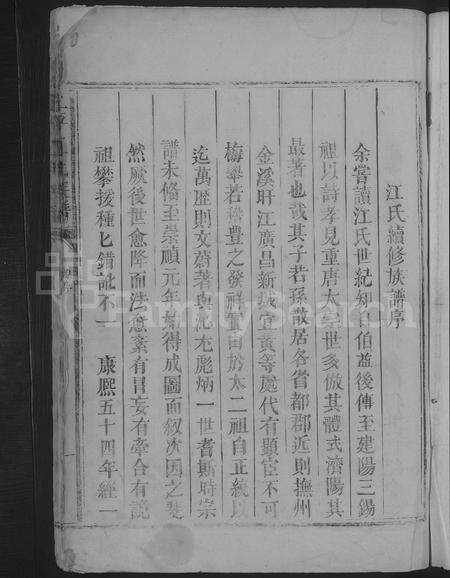 江氏續修族譜序
余嘗讀江氏世紀知自伯益後傳至建陽三錫
祖以詩孝見重唐太宗世多倣其體式濟陽其
最著也哉其子若孫散居各省都郡近則撫州
金溪盱江廣昌新城宜黃等處代有顯宦不可
梅舉若 豐之發祥實由於本二祖自正統以
迄萬歷則文蔚著與沁充彪炳一世耆斯時宗
譜未脩至崇禎元年 得成圖面叙次因之
然厥後世愈降而法愈紊有冒妄有牽合有説
祖攀援種匕錯訛不一 康熙五十四年經一
FamilySearch